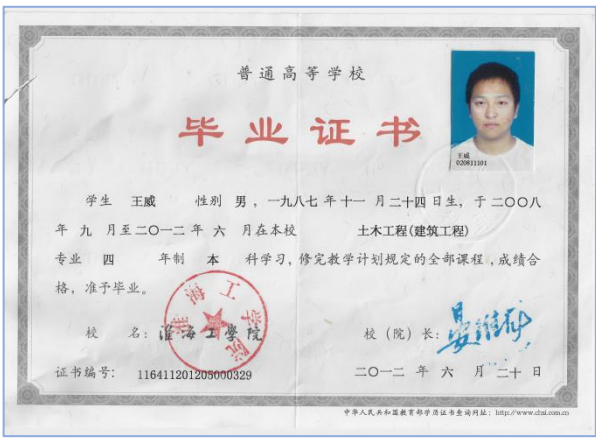 普通高等学校
毕业证书
王威
020811101
学生 王威 性别 男，一九八七年十一月二十四日生，于二〇〇八
年九月至二〇一二年六月在本校 土木工程(建筑工程)
专业 四 年制 本 科学习，修完教学计划规定的全部课程，成绩合
格，准予毕业。
淮海工学院
校 名：淮海工学院
校（院）长：
证书编号： 116411201205000329
二〇一二年六月二十日
中华人民共和国教育部学历证书查询网址：http://www.chsi.com.cn